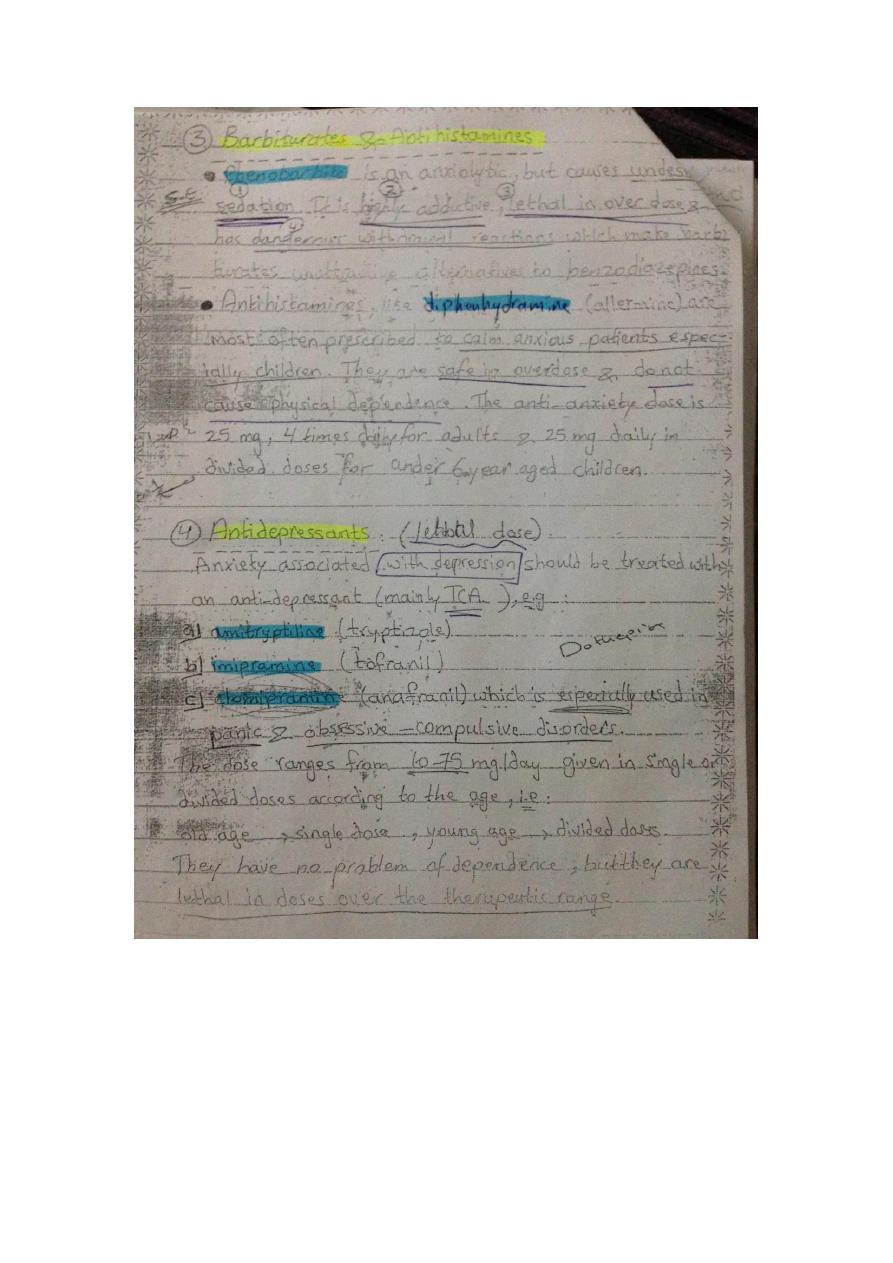 ③ Barbiturates & Antihistamines
• Phenobarbite is an anxiolytic, but causes undes
S.E ①②③
sedation. It is highly addictive, lethal in over dose &
④
has dangerous withdrawal reactions which make barbi
turates unattractive alternatives to benzodiazepines.
• Antihistamines like diphenhydramine (allermine) are
most often prescribed to calm anxious patients espec-
ially children. They are safe in overdose & do not
cause physical dependence. The anti-anxiety dose is
25 mg, 4 times daily for adults & 25 mg daily in
divided doses for under 6 year aged children.
④ Antidepressants : (lethal dose)
Anxiety associated with depression should be treated with
an anti-depressant (mainly TCA), e.g :
a) amitryptiline (tryptizole)
b) imipramine (tofranil)
c) clomipramine (anafranil) which is especially used in
panic & obsessive-compulsive disorders.
The dose ranges from 10-75 mg/day given in single or
divided doses according to the age, i.e :
old age → single dose, young age → divided doses.
They have no problem of dependence, but they are
lethal in doses over the therapeutic range.